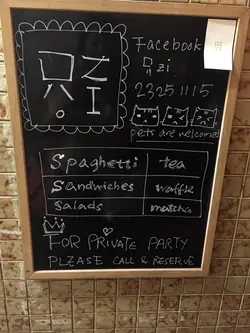 只 Z
I
Facebook
只 zi
2325 1115
pets are welcomed
Spaghetti tea
Sandwiches waffle
Salads matcha
FOR PRIVATE PARTY
PLEASE CALL & RESERVE